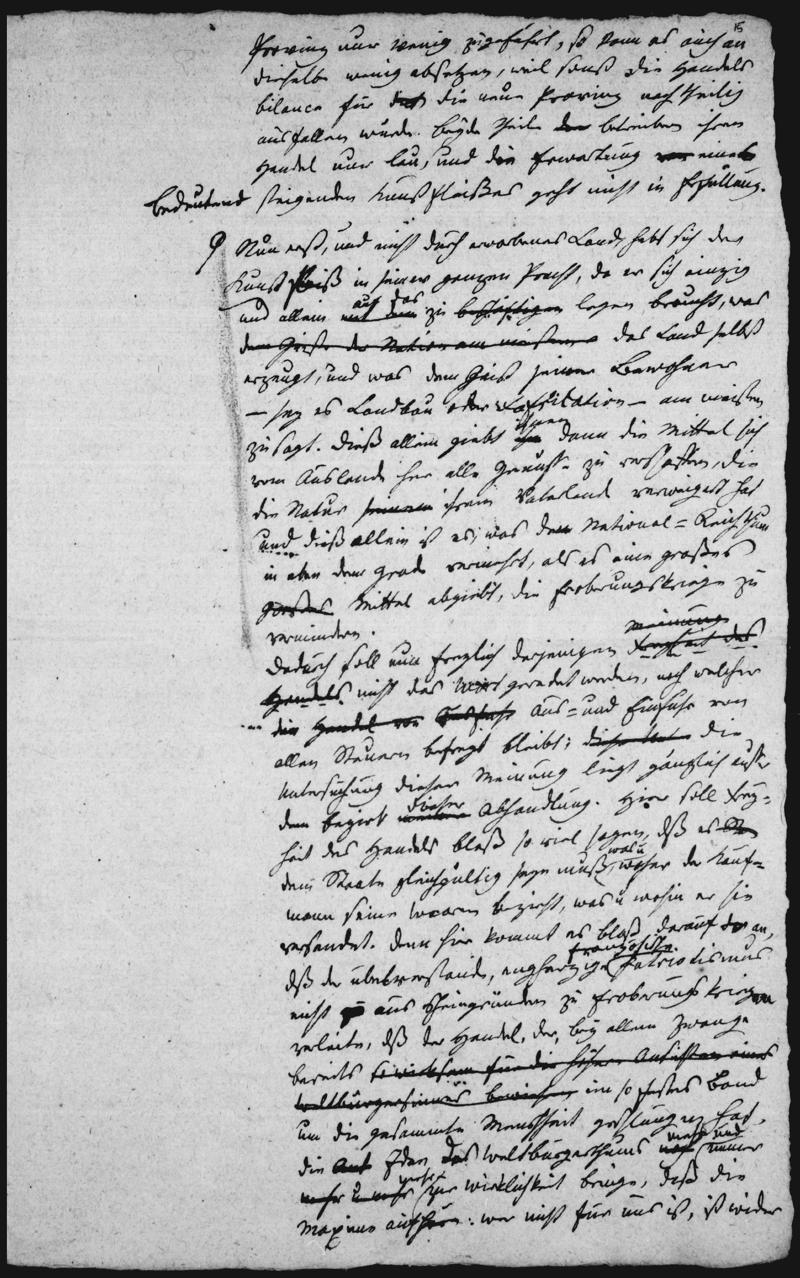 15
Provinz nur wenig zugeführt, so kann es auch an
dieselbe wenig absetzen, weil sonst die Handels
bilance für die neue Provinz nachtheilig
ausfallen würde. Beyde Theile betreiben ihren
Handel nur lau, und die Erwartung eines
bedeutend steigenden Kunstfleißes geht nicht in Erfüllung.
Nun erst, und nicht durch erworbenes Land, hebt sich der
Kunstfleiß in seiner ganzen Pracht, da er sich einzig
und allein auf das zu legen braucht, was
dem Geiste der Nation am meisten das Land selbst
erzeugt, und was dem Geist seiner Bewohner
– sey es Landbau oder Fabrication – am meisten
zusagt. Dieß allein giebt ihnen dann die Mittel sich
vom Auslande her alle Genüsse zu verschaffen, die
die Natur ihrem Vaterland verweigert hat
und dieß allein ist es, was den National=Reichthum
in eben dem Grade vermehrt, als es ein großes
Mittel abgiebt, die Eroberungskriege zu
vermindern.
Meinung
Dadurch soll nun freylich derjenigen Freyheit des
Handels nicht das Wort geredet werden, nach welcher
die Handel von Aus= und Einfuhr von
allen Steuern befreyt bleibt; die
Untersuchung dieser Meinung liegt gänzlich außer
dem Bezirk dieser Abhandlung. Hier soll Frey=
heit des Handels bloß so viel sagen, daß es
dem Staate gleichgültig seyn muß, was u woher der Kauf=
mann seine Waaren bezieht, was u wohin er sie
versendet. Denn hier kommt es bloß darauf an,
französische
daß der übelverstandene, engherzige Patriotismus
nicht aus Scheingründen zu Eroberungskriegen
verleite, daß der Handel, der, bey allem Zwange
bereits so wirksam für die höhern Ansichten eines
Weltbürgersinnes bewiesen ein so festes Band
um die gesammte Menschheit geschlungen hat,
die Idee des Weltbürgerthums mehr und immer
mehr u mehr zur Wirklichkeit bringe, daß die
Maxime aufhöre: wer nicht für uns ist, ist wider